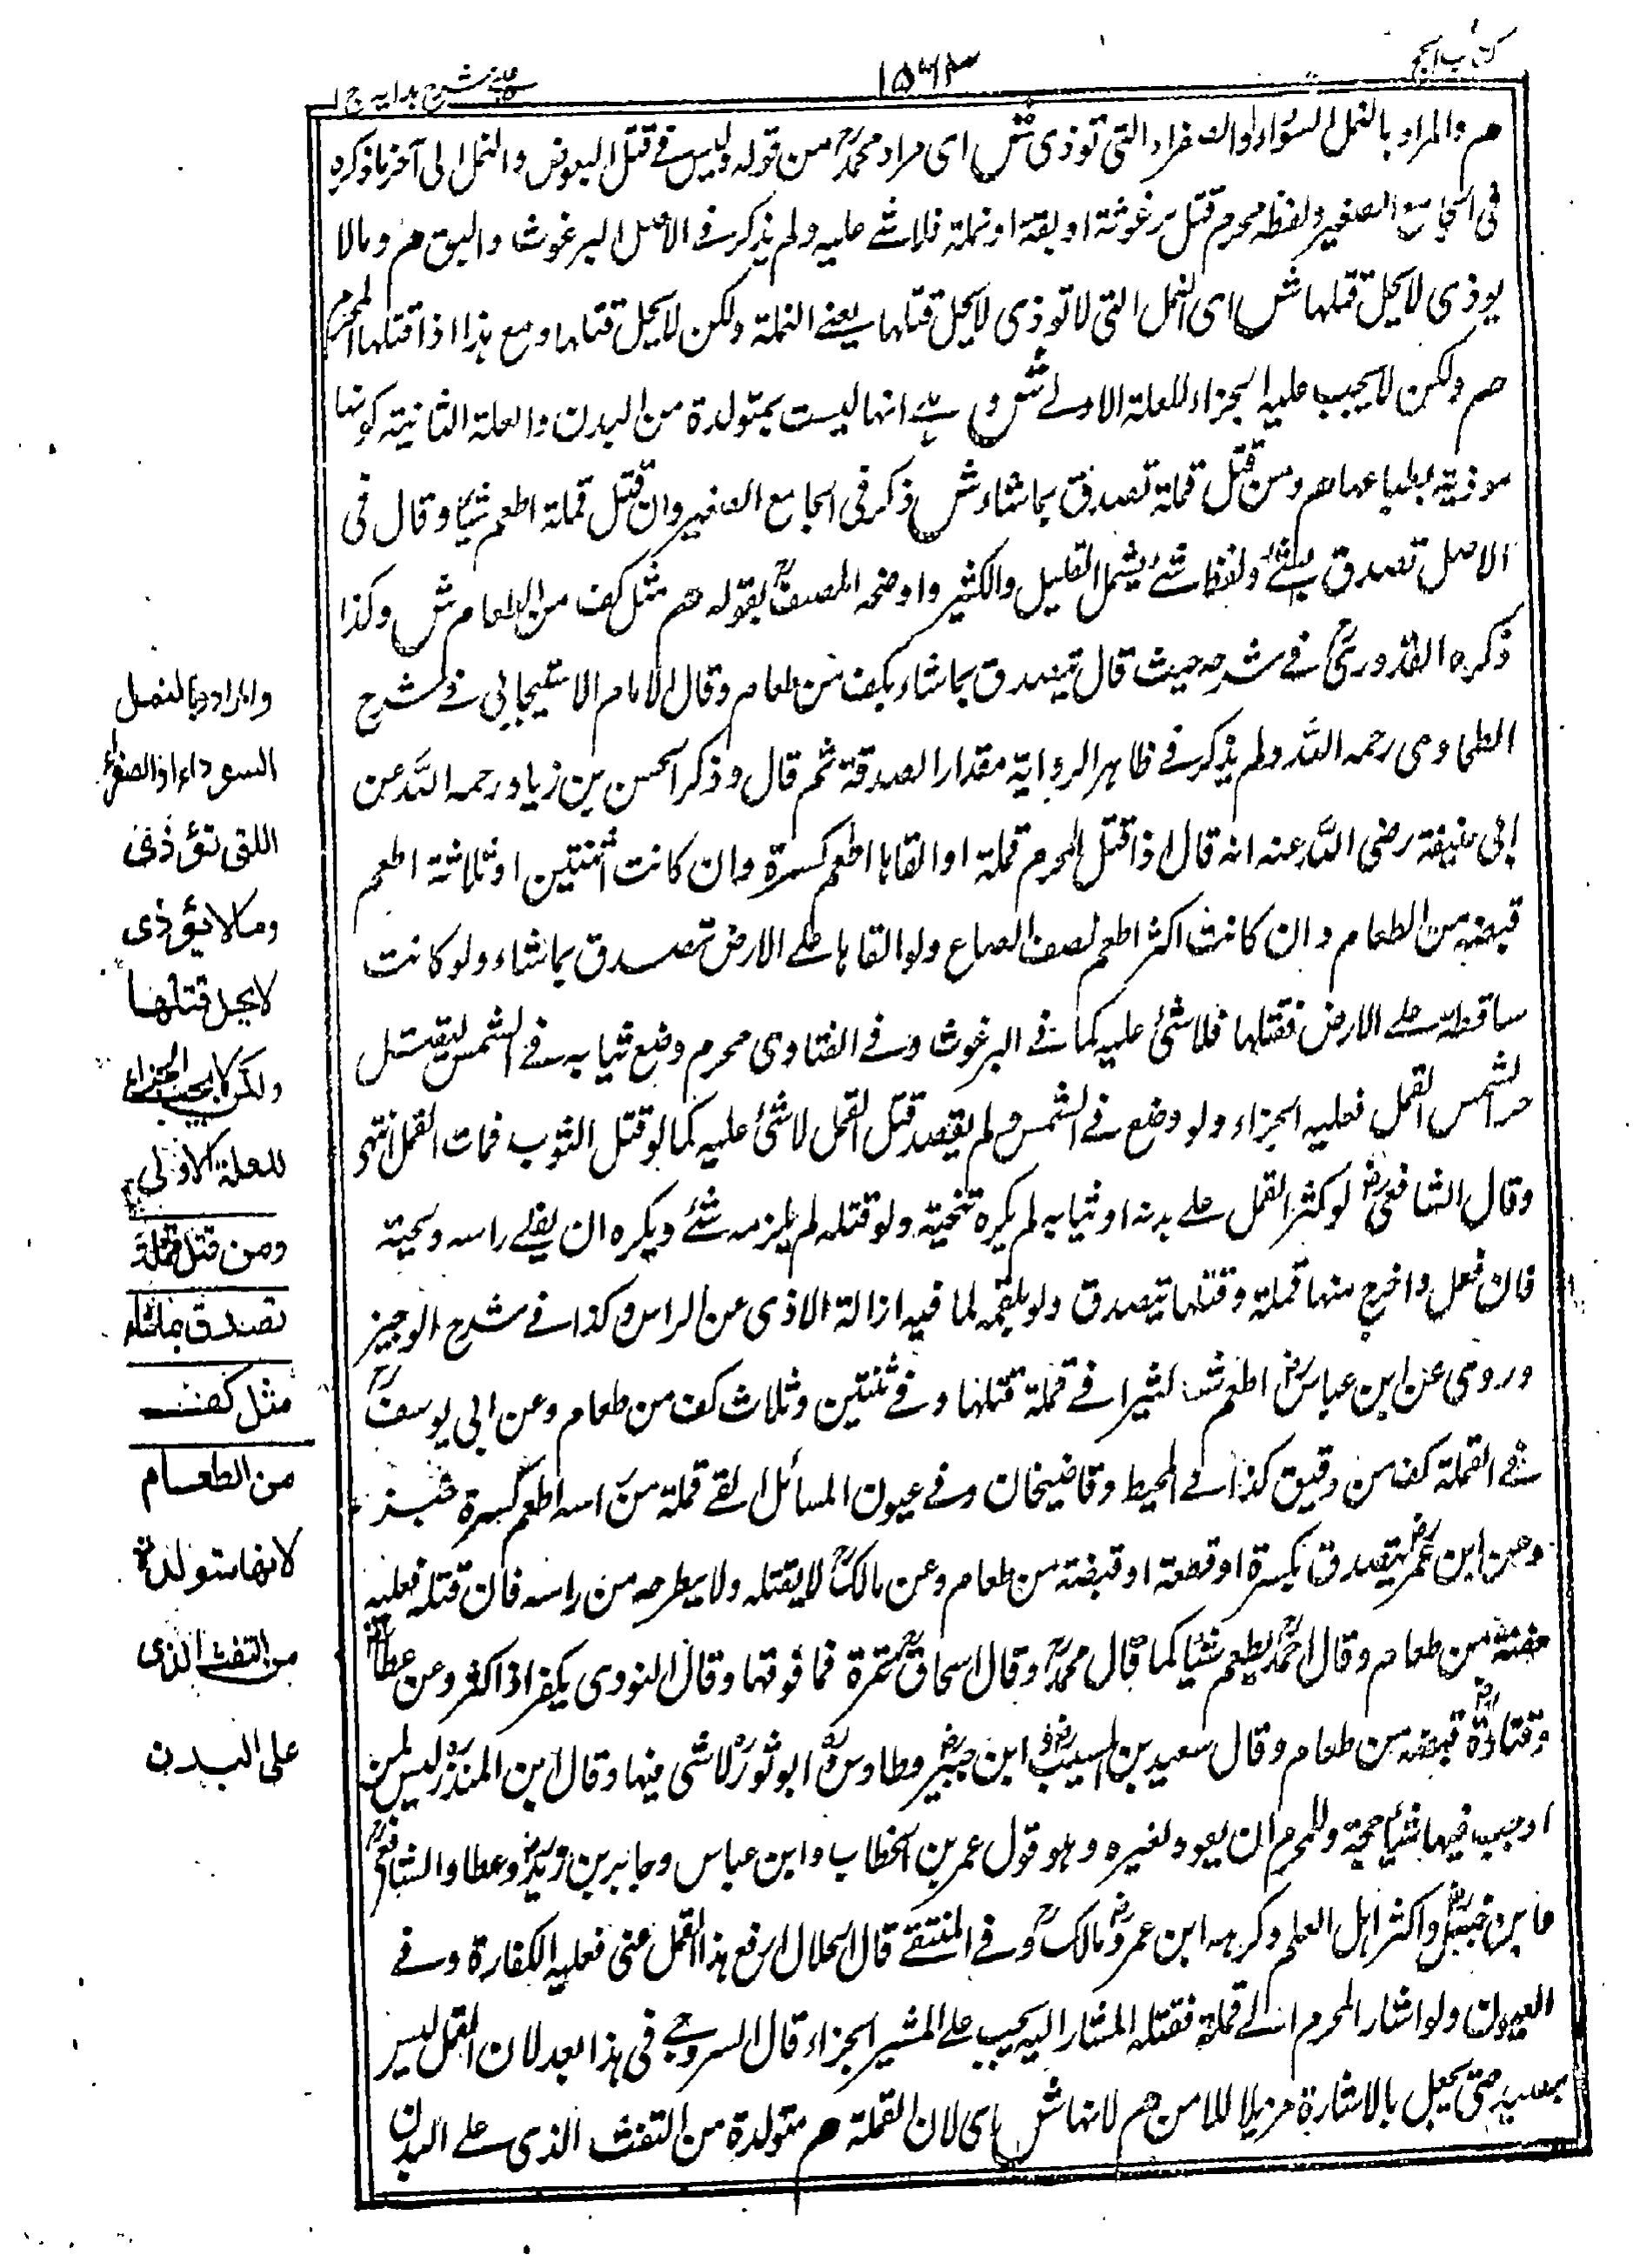 كتاب الحج
١٥٦٣
عینی شرح ہدایہ ج ١
هم والمراد بالنمل السوداء او الصفراء التي توذى ش اى مراد محمدؒ من قوله وليس فے قتل البعوض والنمل الى آخر ما ذكره
فى الجامع الصغير ولفظه محرم قتل برغوثة او بقة او نملة فلا شے عليه ولم يذكر فے الاصل البرغوث والبق هم ومالا
يوذى لا يحل قتلها ش اى النمل التي لا توذى لا يحل قتلها يعنے النملة ولكن لا يحل قتلها ومع هذا اذا قتلها المحرم
هم ولكن لا يجب عليه الجزاء للعلة الاولے ش و ہے انها ليست بمتولدة من البدن والعلة الثانية كونها
موذية بطباعها هم ومن قتل قملة تصدق بما شاء ش ذكر فى الجامع الصغير وان قتل قملة اطعم شيئا وقال فى
الاصل تصدق بشئ ولفظ شے يشمل القليل والكثير واوضحه المصنفؒ بقوله هم مثل كف من الطعام ش وكذا
ذكره القدورىؒ فے شرحه حيث قال تيصدق بما شاء بكف من طعام وقال الامام الاسبيجابى فے شرح
الطحاوى رحمه الله ولم يذكر فے ظاهر الرواية مقدار الصدقة ثم قال وذكر الحسن بن زياد رحمه الله عن
ابى حنيفة رضى الله عنه انه قال اذا قتل المحرم قملة او القاها اطعم كسرة وان كانت اثنتين او ثلاثة اطعم
قبضة من الطعام وان كانت اكثر اطعم نصف الصاع ولو القاها علے الارض تصدق بما شاء ولو كانت
ساقطة علے الارض فقتلها فلا شئ عليه كما فے البرغوث وفے الفتاوى محرم وضع ثيابه فے الشمس ليقتل
حر الشمس القمل فعليه الجزاء ولو وضع فے الشمس ولم يقصد قتل القمل لا شئ عليه كما لو قتل الثوب فمات القمل انتهى
وقال الشافعىؒ لو كثر القمل علے بدنه او ثيابه لم يكره تنحيته ولو قتله لم يلزمه شئ ويكره ان يفلے راسه ولحيته
فان فعل واخرج منها قملة وقتلها تيصدق ولو بلقمة لما فيه ازالة الاذى عن الراس وكذا فے شرح الوجيز
وروى عن ابن عباسؓ اطعم شيئا كثيرا فے قملة قتلها وفے ثنتين وثلاث كف من طعام وعن ابى يوسفؒ
فے القملة كف من دقيق كذا فے المحيط وقاضيخان وفے عيون المسائل القے قملة من راسه اطعم كسرة خبز
وعن ابن عمرؓ تيصدق بكسرة او قطعة او قبضة من طعام وعن مالكؒ لا يقتله ولا يطرحه من راسه فان قتله فعليه
حفنة من طعام وقال احمدؒ يطعم شيئا كما قال محمدؒ وقال اسحاقؒ تمرة فما فوقها وقال النووى يكفر اذا كثر وعن عطاءؒ
وقتادةؒ قبضة من طعام وقال سعيد بن المسيبؓ وابن جبيرؓ وطاوسؒ وابو ثورؒ لا شى فيها وقال ابن المنذرؒ ليس لمن
اوجب فيها شيئا حجة وللمحرم ان يعود لغيره وهو قول عمر بن الخطاب وابن عباس وجابر بن زيدؓ وعطا والشافعىؒ
وابن حنبلؒ واكثر اهل العلم وكرهه ابن عمرؓ ومالكؒ وفے المنتقے قال الحلال ارفع هذا القمل عنى فعليه الكفارة وفے
العيون ولو اشار المحرم الے قملة فقتله المشار اليه يجب علے المشير الجزاء قال السروجے فى هذا بعد لان القمل ليس
بصيد حتى يجعل بالاشارة مزيلا للامن هم لانها ش اى لان القملة هم متولدة من التفث الذى علے البدن
والمراد بالنمل
السوداء او الصفراء
اللتى تؤذى
وما لا يؤذى
لا يحل قتلها
ولكن لا يجب الجزاء
للعلة الاولى
ومن قتل قملة
تصدق بما شاء
مثل كف
من الطعام
لانها متولدة
من التفث الذى
على البدن